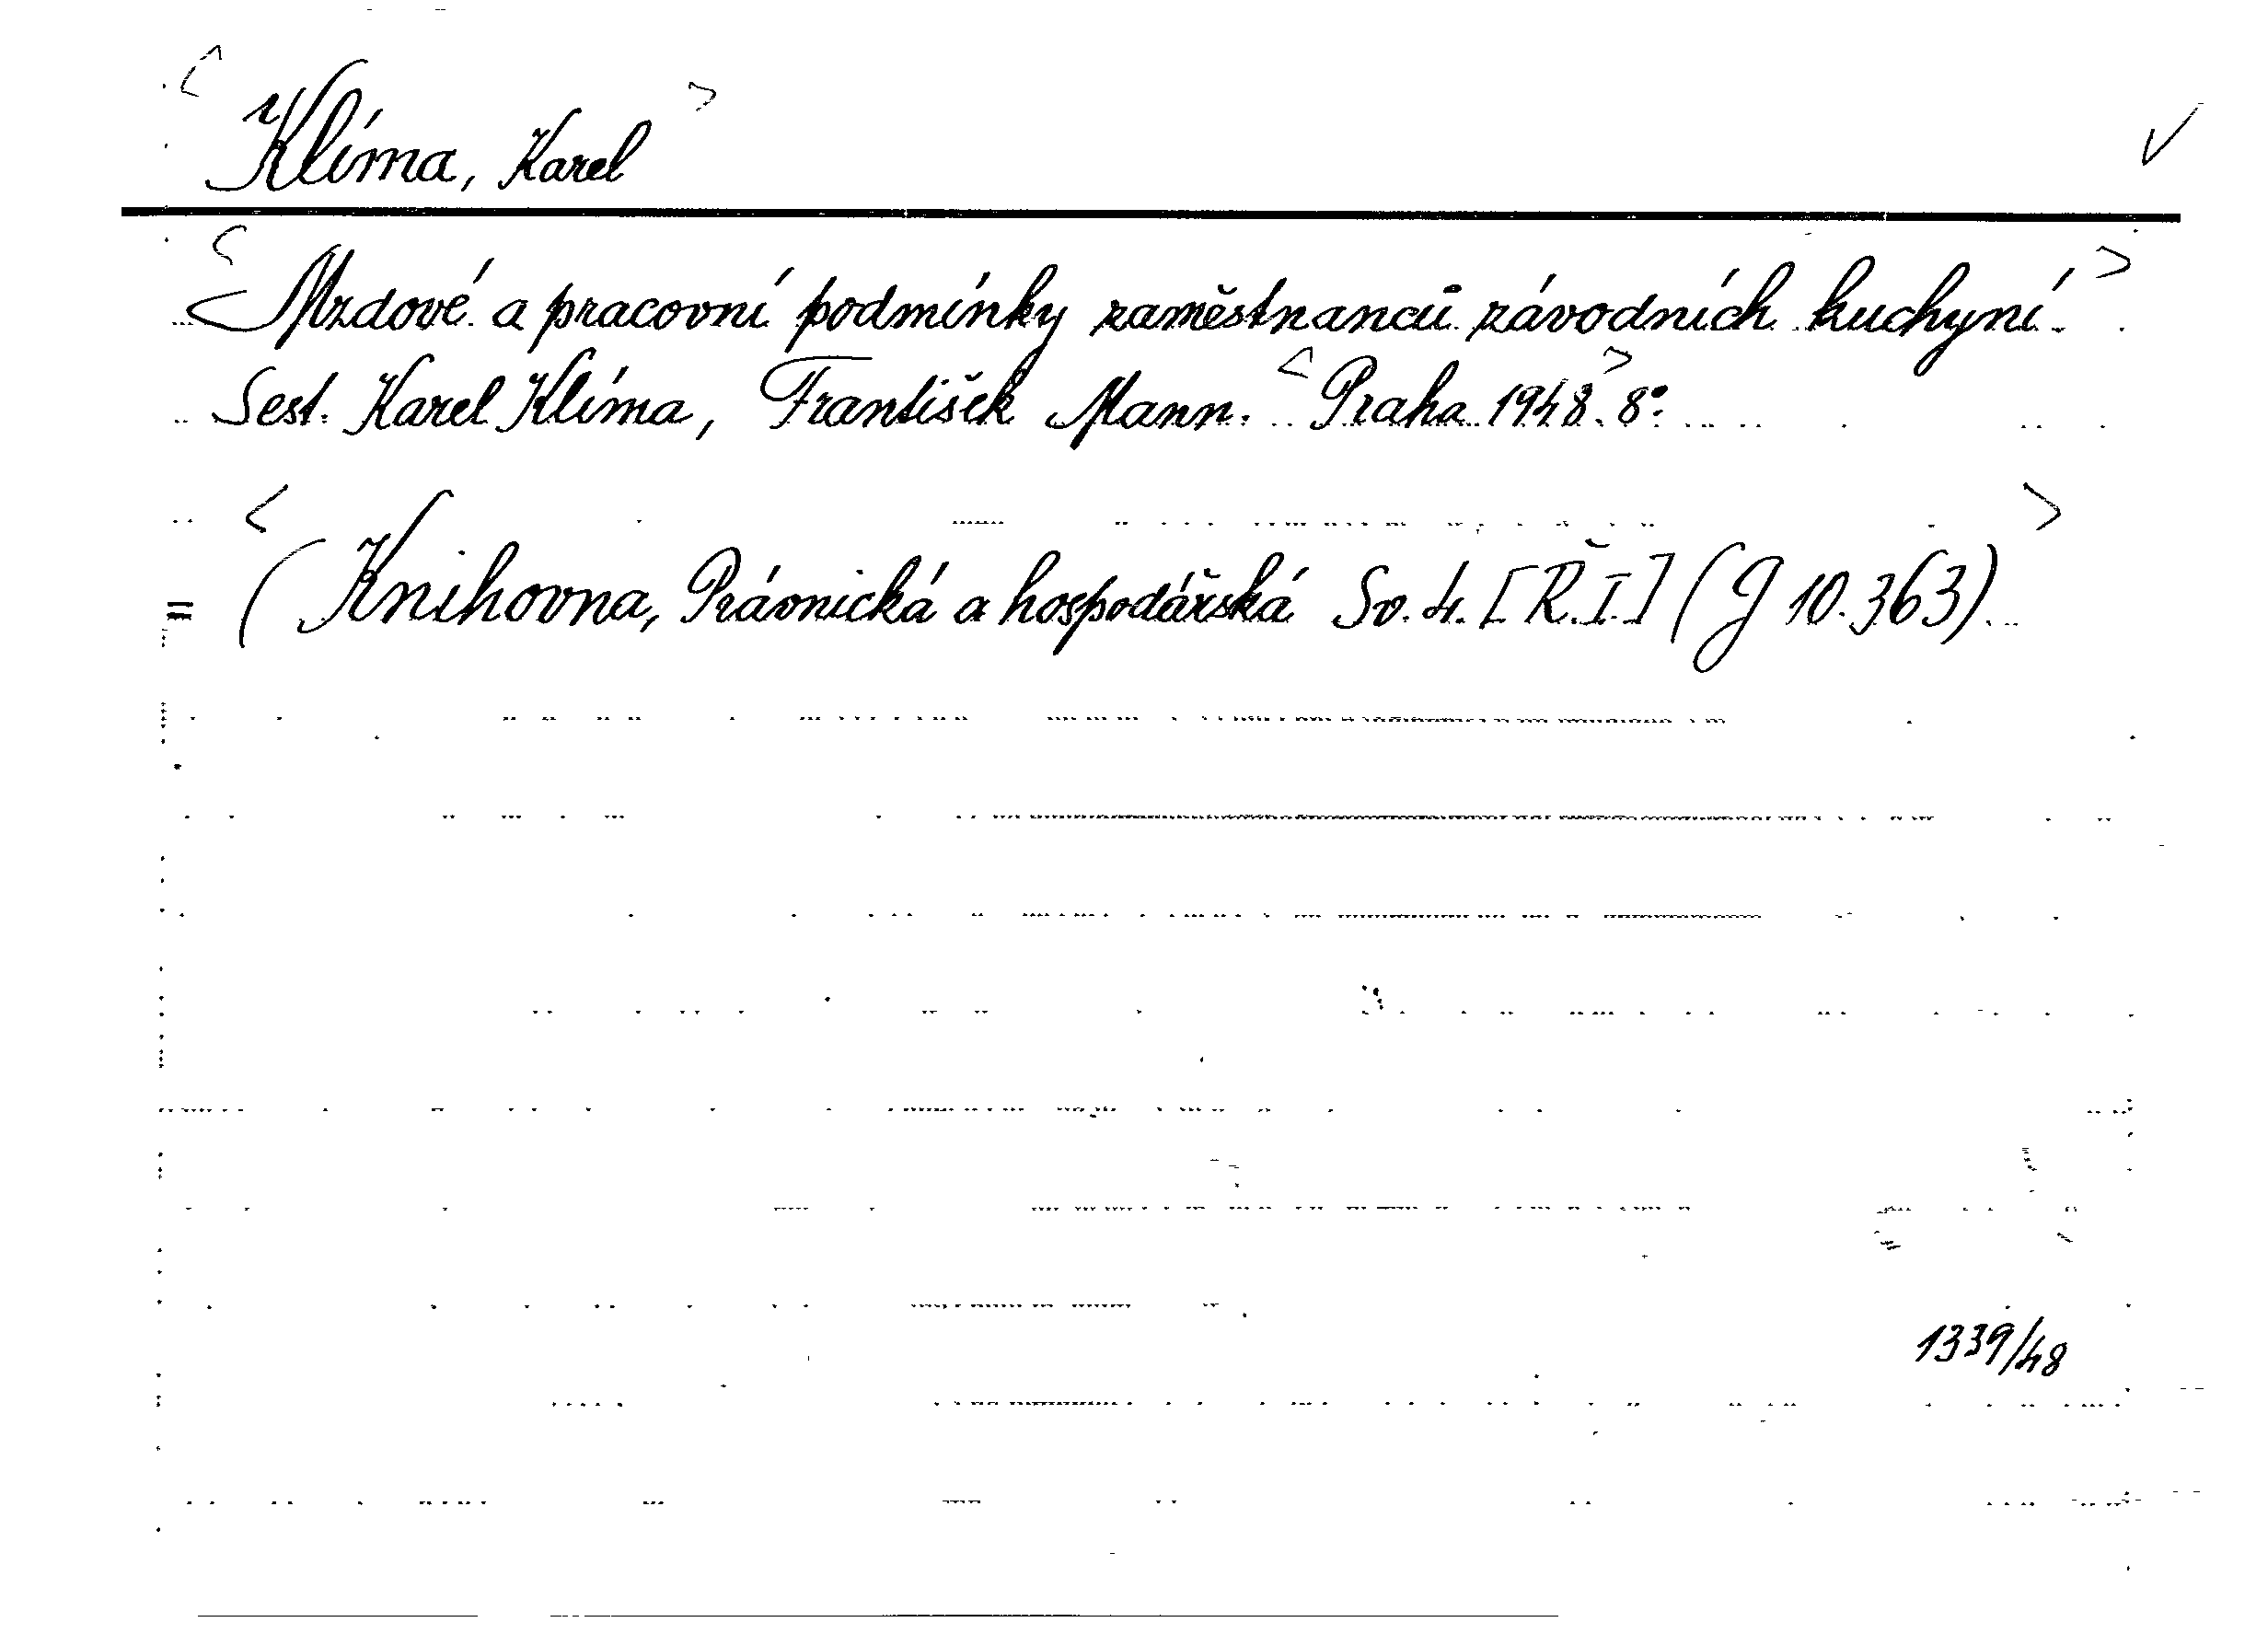 Klíma, Karel
Mzdové a pracovní podmínky zaměstnanců závodních kuchyní.
Sest. Karel Klíma, František Mann. Praha 1948. 8°.
= (Knihovna, Právnická a hospodářská Sv. 4. [Ř.I.] (J 10.363).
1339/48